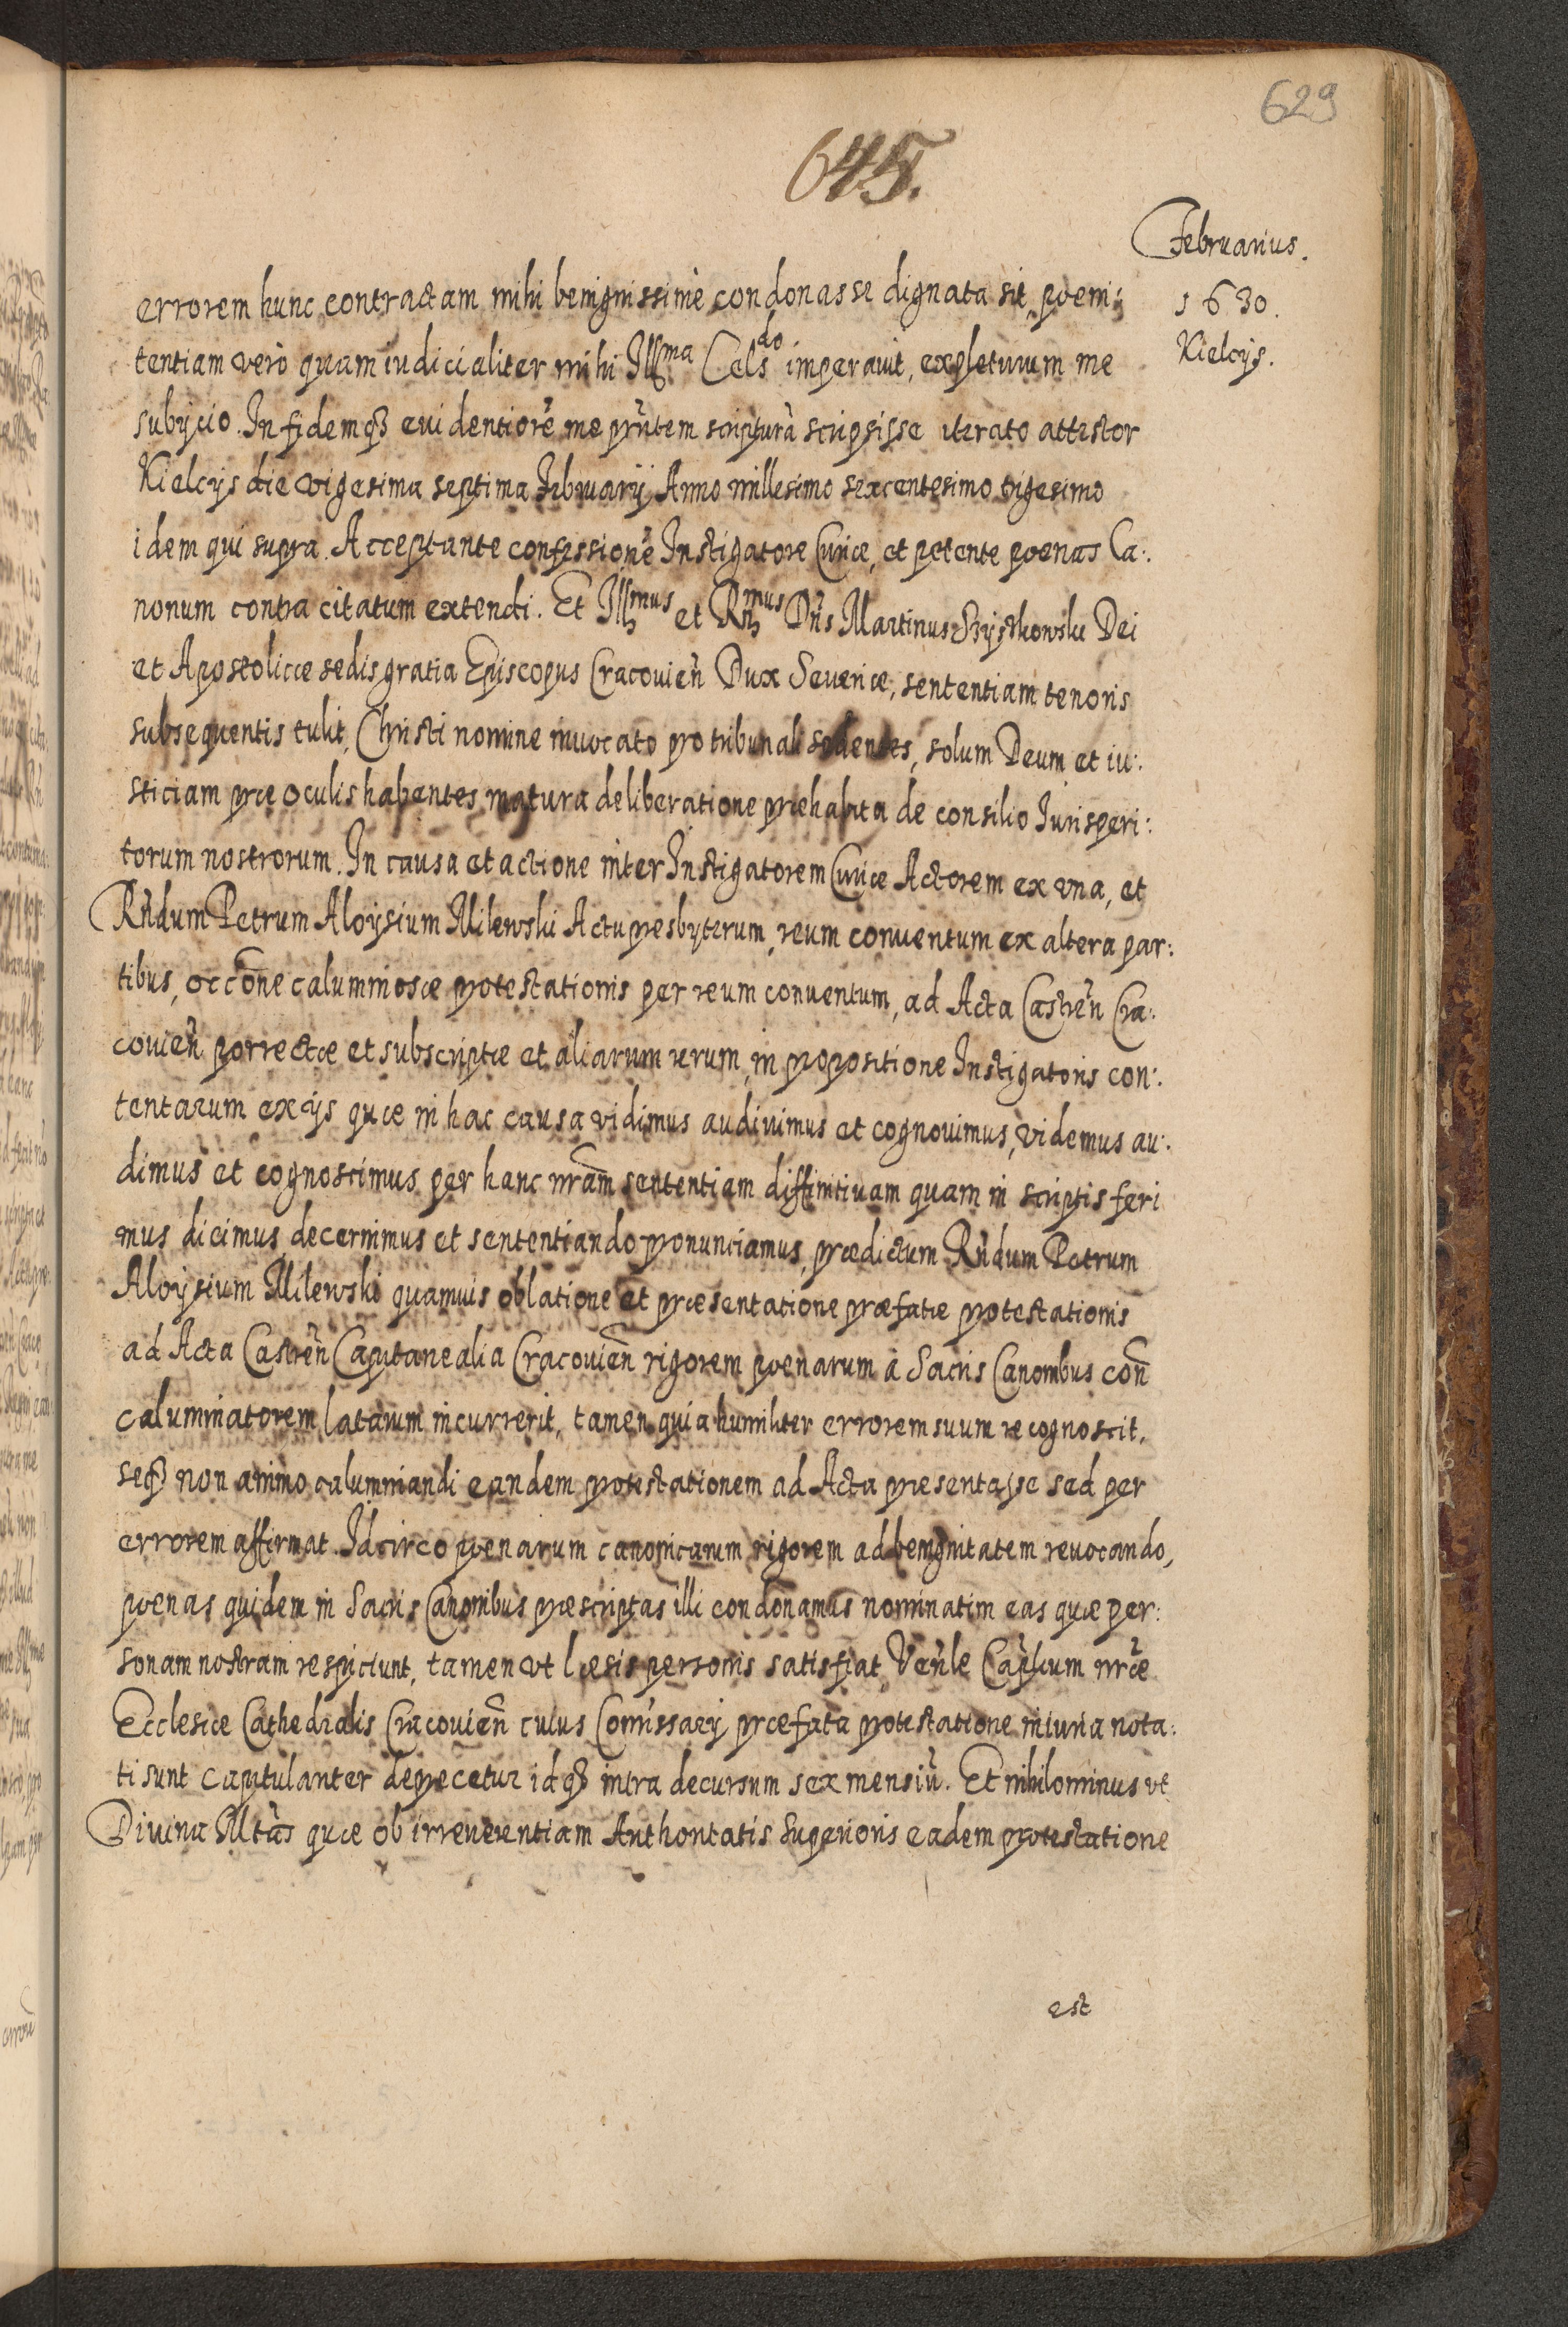 629
645.
Februarius.
1630.
Kielcijs.
errorem hunc contractam mihi benignissimè condonasse dignata sit, poeni:
tentiam verò quam iudicialiter mihi Illma Celsdo imperauit, expleturum me
subijcio. In fidemq3 euidentiorē me pñtem scripturā scripsisse iterato attestor
Kielcijs die vigesima septima Februarij Anno millesimo sexcentesimo trigesimo
idem qui supra. Acceptante confessionē Instigatore Curiæ, et petente poenas Ca:
nonum contra citatum extendi. Et Illmus et Rndmus Dñs Martinus Szyszkowski Dei
et Apostolicæ sedis gratia Episcopus Cracouieñ Dux Seueriæ, sententiam tenoris
subsequentis tulit, Christi nomine inuocato pro tribunali sedentes, solum Deum et iu:
sticiam præ oculis habentes, matura deliberatione præhabita de consilio Iurisperi:
torum nostrorum. In causa et actione inter Instigatorem Curiæ Actorem ex vna, et
Rñdum Petrum Aloysium Milewski Actu presbyterum, reum conuentum ex altera par:
tibus, occōne calumniosæ protestationis per reum conuentum, ad Acta Castreñ Cra:
couieñ porrectæ et subscriptæ et aliarum rerum, in propositione Instigatoris con:
tentarum ex ijs quæ in hac causa vidimus audiuimus et cognouimus, videmus au:
dimus et cognoscimus per hanc nrām sententiam diffinitiuam quam in scriptis feri
mus dicimus, decernimus et sententiando pronunciamus, prædictum Rñdum Petrum
Aloysium Milewski quamuis oblatione et præsentatione præfatæ protestationis
ad Acta Castreñ Capitanealia Cracouieñ rigorem poenarum à Sacris Canonibus coñ
calumniatorem latarum incurrerit, tamen quia humiliter errorem suum recognoscit,
seq3 non animo calumniandi eandem protestationem ad Acta presentasse sed per
errorem affirmat. Idcirco poenarum canonicarum rigorem ad benignitatem reuocando,
poenas quidem in Sacris Canonibus præscriptas illi condonamus nominatim eas quæ per:
sonam nostram respiciunt, tamen vt læsis personis satisfiat, Venle Caplum nræ
Ecclesiæ Cathedralis Cracouieñ cuius Comissarij præfata protestatione iniuria nota:
ti sunt capitulariter deprecetur idq3 intra decursum sex mensiū. Et nihilominus vt
Diuina Mtas quæ ob irreuerentiam Authoritatis Superioris eadem protestatione
est